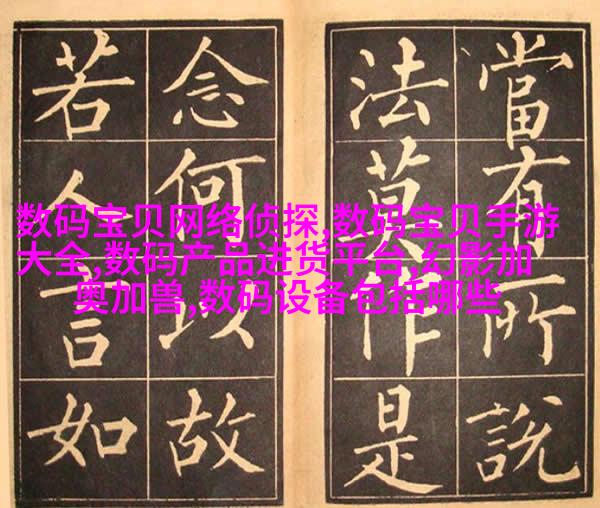 當有所說
法莫作是
念何以故
若人言如
数码宝贝网络侦探,数码宝贝手游
大全,数码产品进货平台,幻影加
奥加兽,数码设备包括哪些